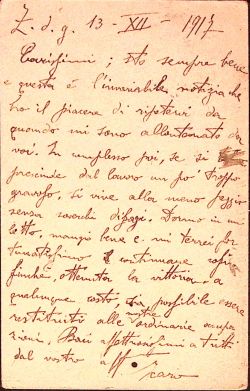 Z. d. g. 13 - XII - 1917
Carissimi; sto sempre bene
e questa è l'invariabile notizia che
ho il piacere di ripetervi da
quando mi sono allontanato da
voi. In complesso poi, se si
prescinde dal lavoro un po' troppo
gravoso, si vive alla meno peggio
senza disagi. Dormo in un
letto, mangio bene e mi terrei for
tunatissimo continuare così
finché, ottenuta la vittoria, a
qualunque costo, sia possibile essere
restituiti alle nostre ordinarie occupa
zioni. Baci affettuosissimi a tutti
dal vostro aff.
Icaro